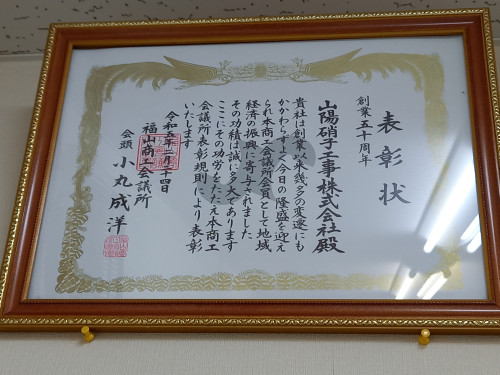 表彰状
創業五十周年
山陽硝子工事株式会社殿
貴社は創業以来幾多の変遷にも
かかわらずよく今日の隆盛を迎え
られ本商工会議所会員として地域
経済の振興に寄与されました
その功績は誠に多大であります
ここにその功労をたたえ本商工
会議所表彰規則により表彰
いたします
令和五年 月二十四日
福山商工会議所
会頭 小丸成洋